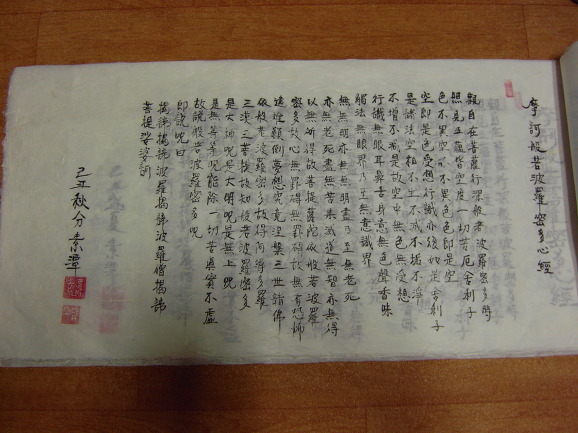 摩訶般若波羅密多心經
觀自在菩薩行深般若波羅密多時
照見五蘊皆空度一切苦厄舍利子
色不異空空不異色色即是空
空即是色受想行識亦復如是舍利子
是諸法空相不生不滅不垢不淨
不增不減是故空中無色無受想
行識無眼耳鼻舌身意無色聲香味
觸法無眼界乃至無意識界
無無明亦無無明盡乃至無老死
亦無老死盡無苦集滅道無智亦無得
以無所得故菩提薩埵依般若波羅
密多故心無罣碍無罣碍故無有恐怖
遠離顛倒夢想究竟涅槃三世諸佛
依般若波羅密多故得阿耨多羅
三藐三菩提故知般若波羅密多
是大神呪是大明呪是無上呪
是無等等呪能除一切苦真實不虛
故說般若波羅密多呪
即說呪曰
揭諦揭諦波羅揭諦波羅僧揭諦
菩提娑婆訶
己丑秋分 素潭